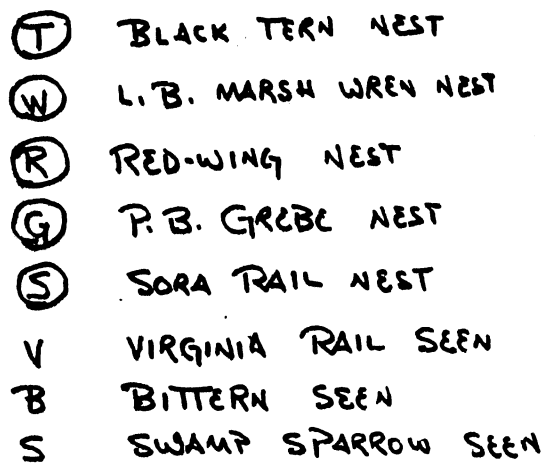 T BLACK TERN NEST
W L.B. MARSH WREN NEST
R RED-WING NEST
G P.B. GREBE NEST
S SORA RAIL NEST
V VIRGINIA RAIL SEEN
B BITTERN SEEN
S SWAMP SPARROW SEEN